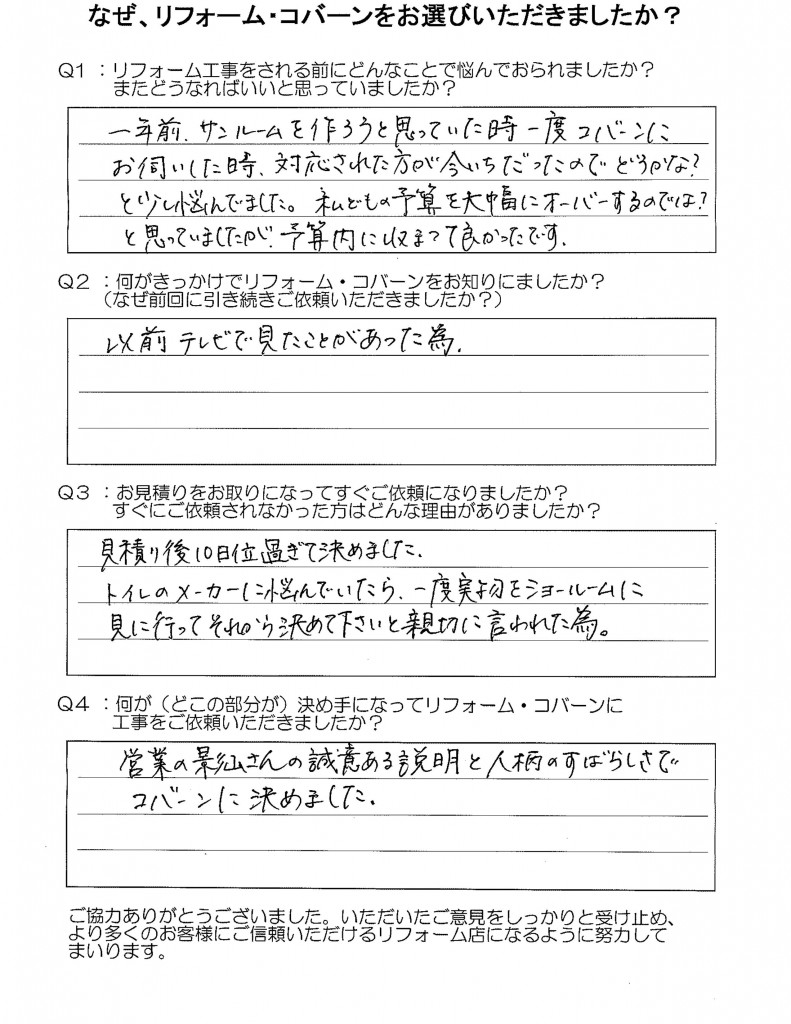 なぜ、リフォーム・コバーンをお選びいただきましたか？
Q1 ：リフォーム工事をされる前にどんなことで悩んでおられましたか？
またどうなればいいと思っていましたか？
一年前、サンルームを作ろうと思っていた時一度コバーンに
お伺いした時、対応された方が今いちだったのでどうかな？
と少し悩んでました。私どもの予算を大幅にオーバーするのでは？
と思っていましたが、予算内に収まって良かったです．
Q2 ：何がきっかけでリフォーム・コバーンをお知りにましたか？
（なぜ前回に引き続きご依頼いただきましたか？）
以前テレビで見たことがあった為．
Q3 ：お見積りをお取りになってすぐご依頼になりましたか？
すぐにご依頼されなかった方はどんな理由がありましたか？
見積り後10日位過ぎて決めました．
トイレのメーカーに悩んでいたら、一度実物をショールームに
見に行ってそれから決めて下さいと親切に言われた為。
Q4 ：何が（どこの部分が）決め手になってリフォーム・コバーンに
工事をご依頼いただきましたか？
営業の影山さんの誠意ある説明と人柄のすばらしさで
コバーンに決めました．
ご協力ありがとうございました。いただいたご意見をしっかりと受け止め、
より多くのお客様にご信頼いただけるリフォーム店になるように努力して
まいります。